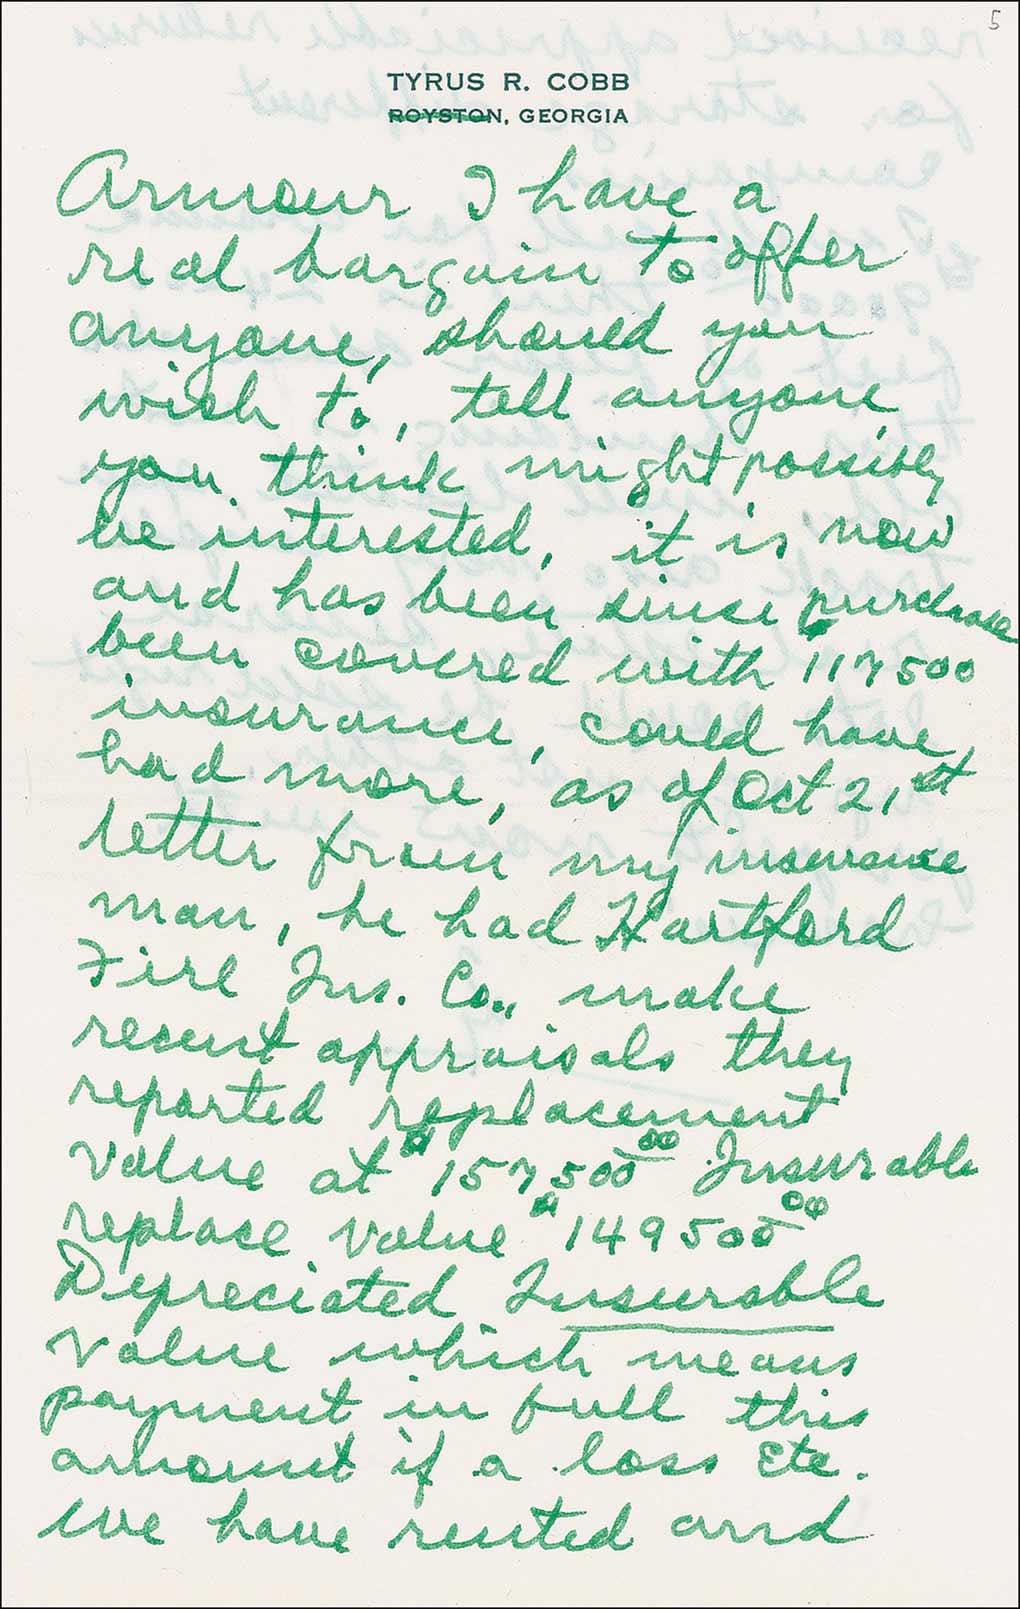 5
TYRUS R. COBB
ROYSTON, GEORGIA
Armour I have a
real bargain to offer
anyone, should you
wish to, tell anyone
you think might possibly
be interested, it is now
and has been since purchase
been covered with $117500
insurance, could have,
had more, as of Oct 21st
letter from my insurance
man, he had Hartford
Fire Ins. Co., make
recent appraisals they
reported replacement
Value at $157,500 00 Insurable
replace value $149500 00
Depreciated Insurable
Value which means
payment in full this
amount if a loss Etc.
We have rented and